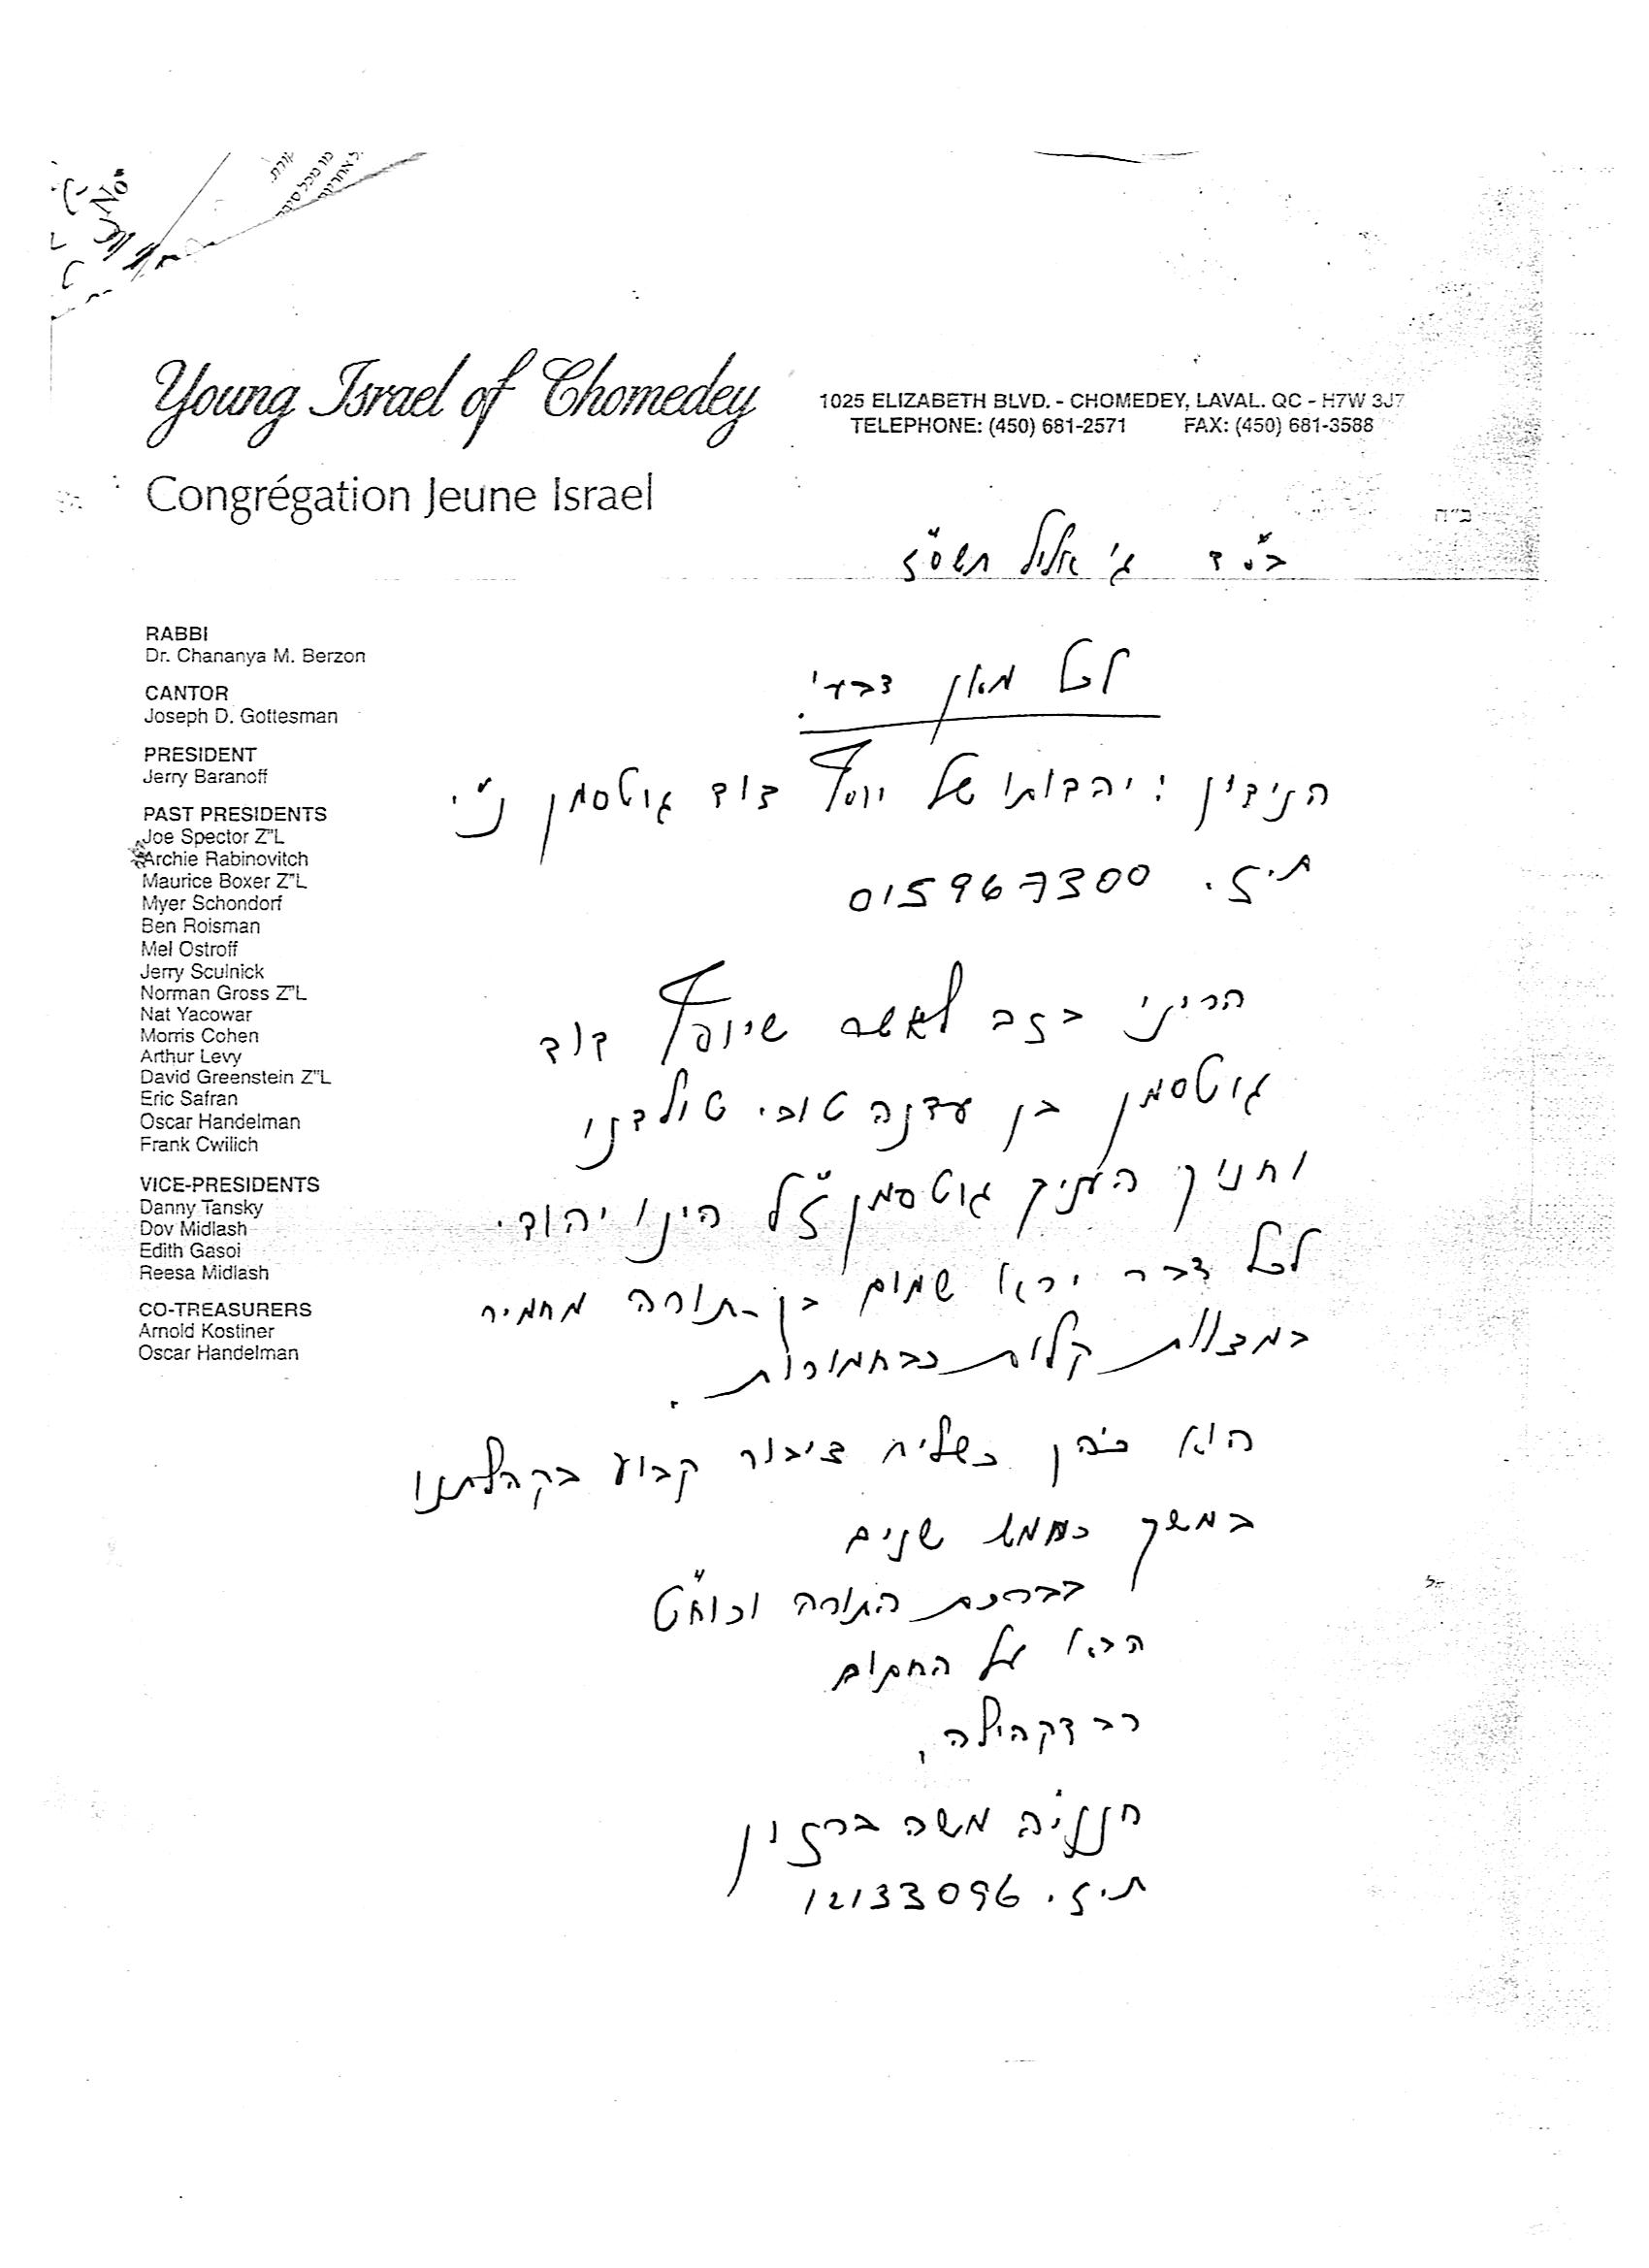 Young Israel of Chomedey
1025 ELIZABETH BLVD. - CHOMEDEY, LAVAL. QC - H7W 3J7
TELEPHONE: (450) 681-2571 FAX: (450) 681-3588
Congrégation Jeune Israel
ב"ה
בס"ד ג' אלול תשס"ז
RABBI
Dr. Chananya M. Berzon
CANTOR
Joseph D. Gottesman
PRESIDENT
Jerry Baranoff
PAST PRESIDENTS
Joe Spector Z"L
Archie Rabinovitch
Maurice Boxer Z"L
Myer Schondorf
Ben Roisman
Mel Ostroff
Jerry Sculnick
Norman Gross Z"L
Nat Yacowar
Morris Cohen
Arthur Levy
David Greenstein Z"L
Eric Safran
Oscar Handelman
Frank Cwilich
VICE-PRESIDENTS
Danny Tansky
Dov Midlash
Edith Gasoi
Reesa Midlash
CO-TREASURERS
Arnold Kostiner
Oscar Handelman
לכל מאן דבעי
הנידון: יהדותו של יוסף דוד גוטסמן נ"י
ת.ז. 015967300
הריני בזב לאשר שיוסף דוד
גוטסמן בן עדנה טובי
וחניך העניך גוטסמן ז"ל הינו יהודי
לכל דבר ירא שמים בן תורה מחמיר
במצוות קלות כבחמורות.
הוא כיהן כשליח ציבור קבוע בקהלתנו
במשך כחמש שנים
בברכת התורה וכוח"ט
הבא על החתום
רב דקהילה,
חנניה משה ברזון
ת.ז. 12133096